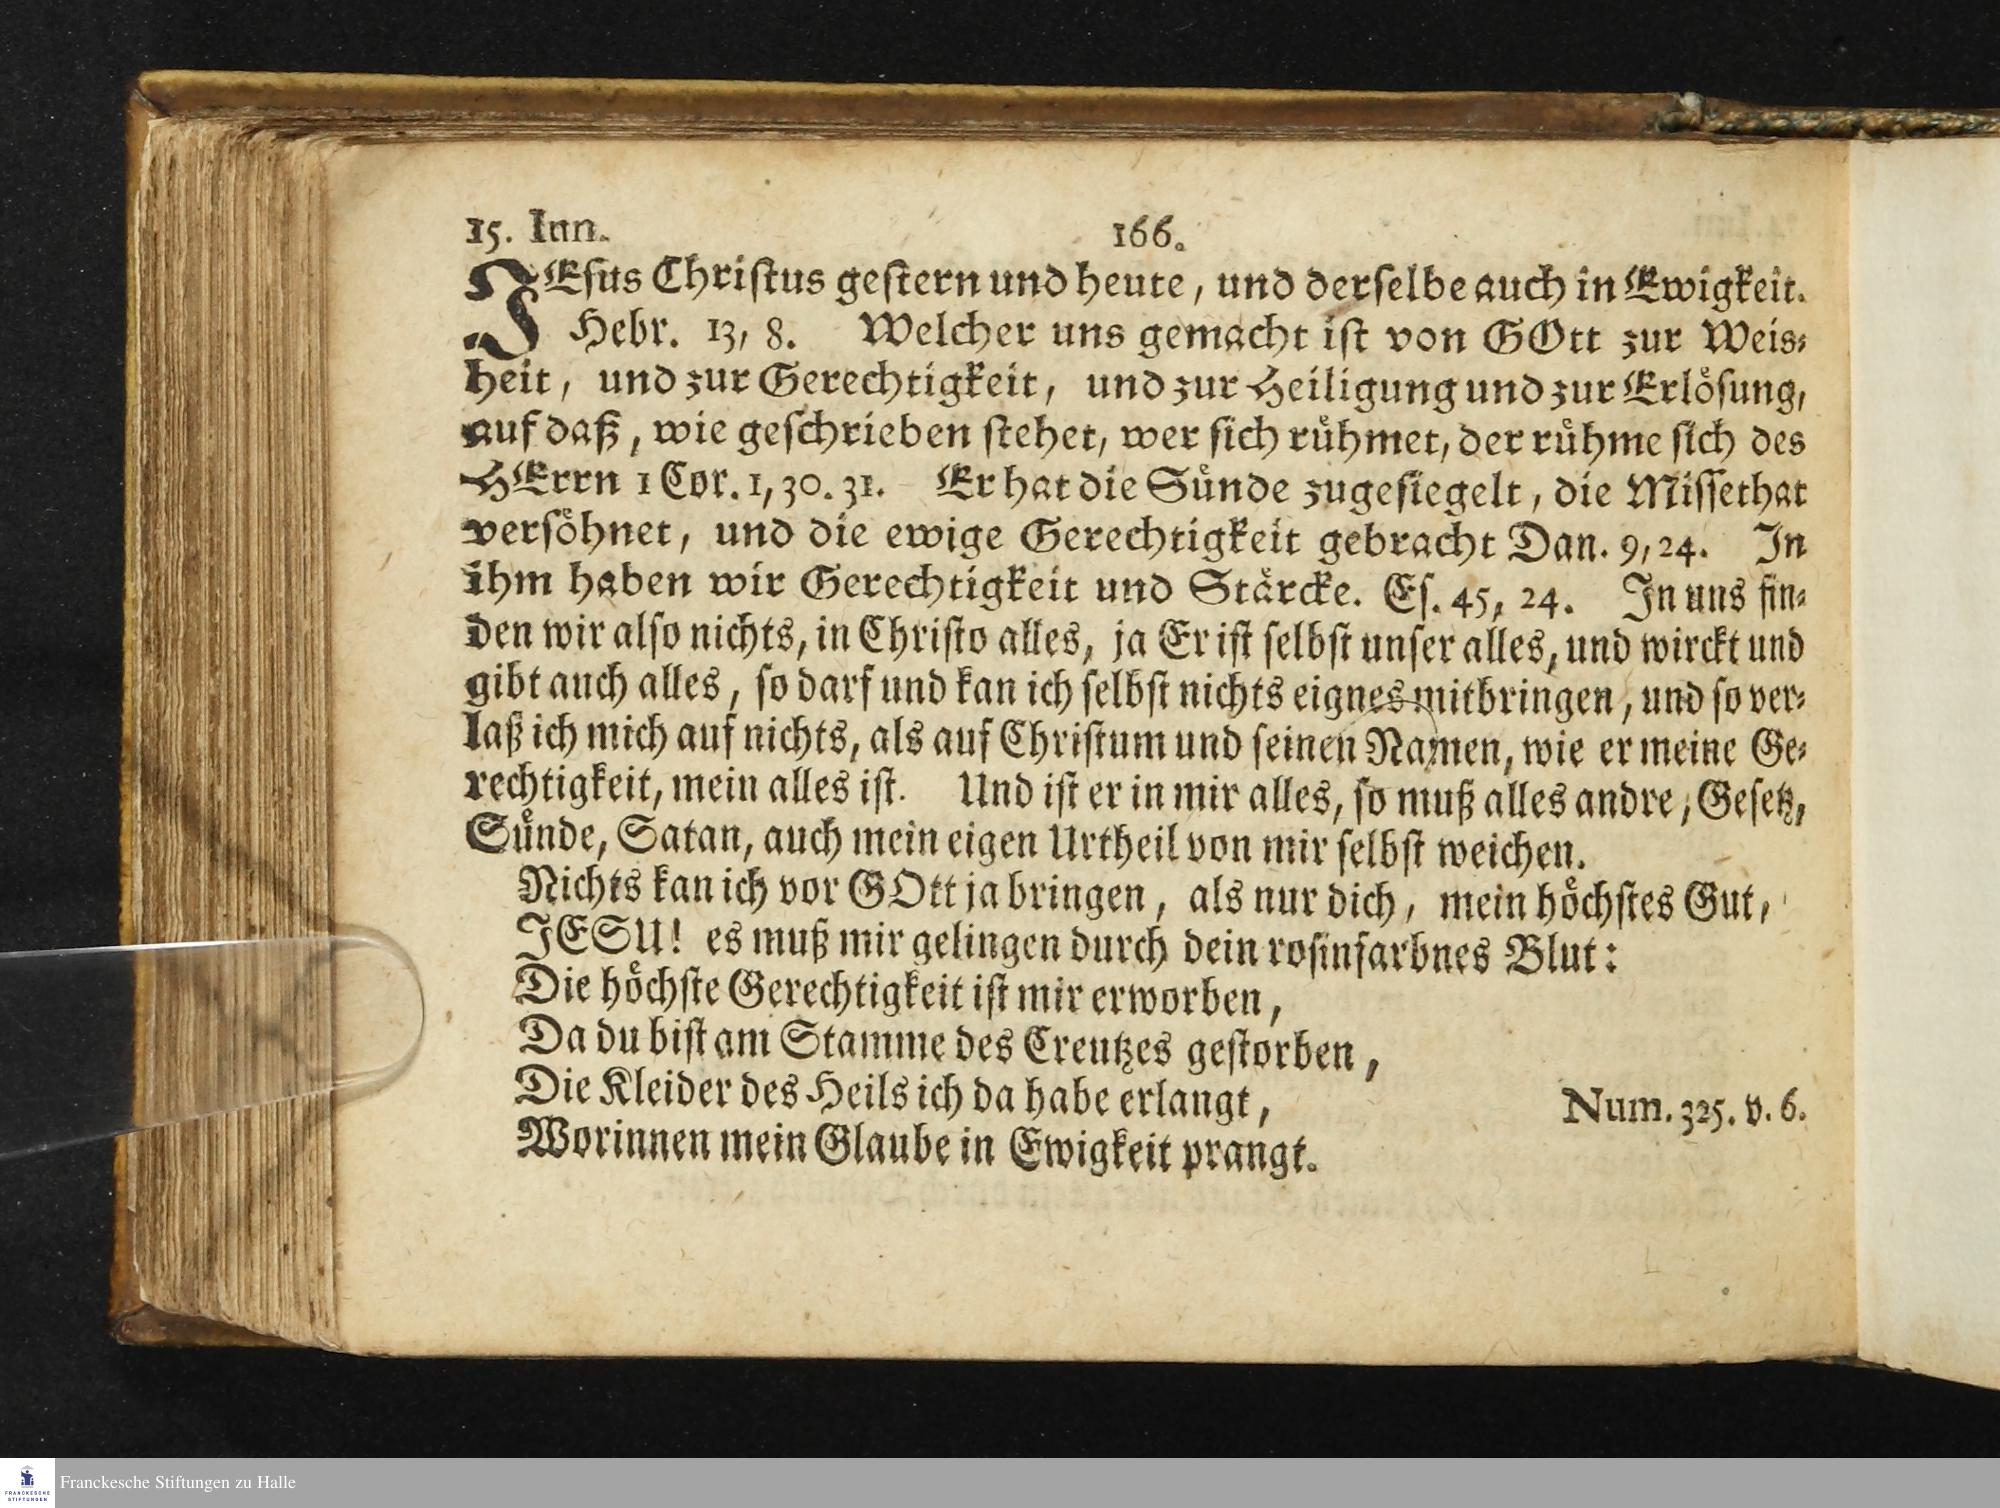 15. Inn.
166.
JEsus Christus gestern und heute, und derselbe auch in Ewigkeit.
Hebr. 13, 8. Welcher uns gemacht ist von GOtt zur Weis-
heit, und zur Gerechtigkeit, und zur Heiligung und zur Erlösung,
auf daß, wie geschrieben stehet, wer sich rühmet, der rühme sich des
HErrn 1 Cor. 1, 30. 31. Er hat die Sünde zugesiegelt, die Missethat
versöhnet, und die ewige Gerechtigkeit gebracht Dan. 9, 24. In
ihm haben wir Gerechtigkeit und Stärcke. Es. 45, 24. In uns fin-
den wir also nichts, in Christo alles, ja Er ist selbst unser alles, und wirckt und
gibt auch alles, so darf und kan ich selbst nichts eignes mitbringen, und so ver-
laß ich mich auf nichts, als auf Christum und seinen Namen, wie er meine Ge-
rechtigkeit, mein alles ist. Und ist er in mir alles, so muß alles andre, Gesetz,
Sünde, Satan, auch mein eigen Urtheil von mir selbst weichen.
Nichts kan ich vor GOtt ja bringen, als nur dich, mein höchstes Gut,
JESU! es muß mir gelingen durch dein rosinfarbnes Blut:
Die höchste Gerechtigkeit ist mir erworben,
Da du bist am Stamme des Creutzes gestorben,
Die Kleider des Heils ich da habe erlangt,
Worinnen mein Glaube in Ewigkeit prangt.
Num. 325. v. 6.
FRANCKESCHE
STIFTUNGEN
Franckesche Stiftungen zu Halle